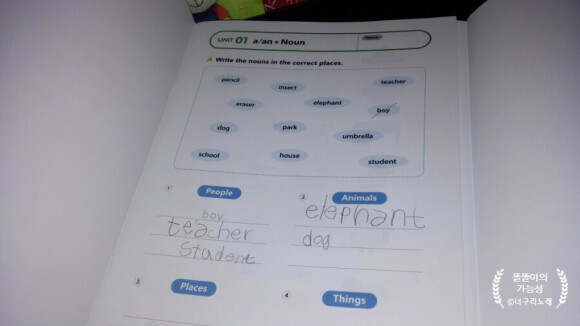 UNIT 01 a/an + Noun
A Write the nouns in the correct places.
pencil insect teacher
eraser elephant boy
dog park umbrella
school house student
1 People 2 Animals
boy elephant
teacher dog
student
3 Places 4 Things
똘똘이의
가능성
©너구리노래